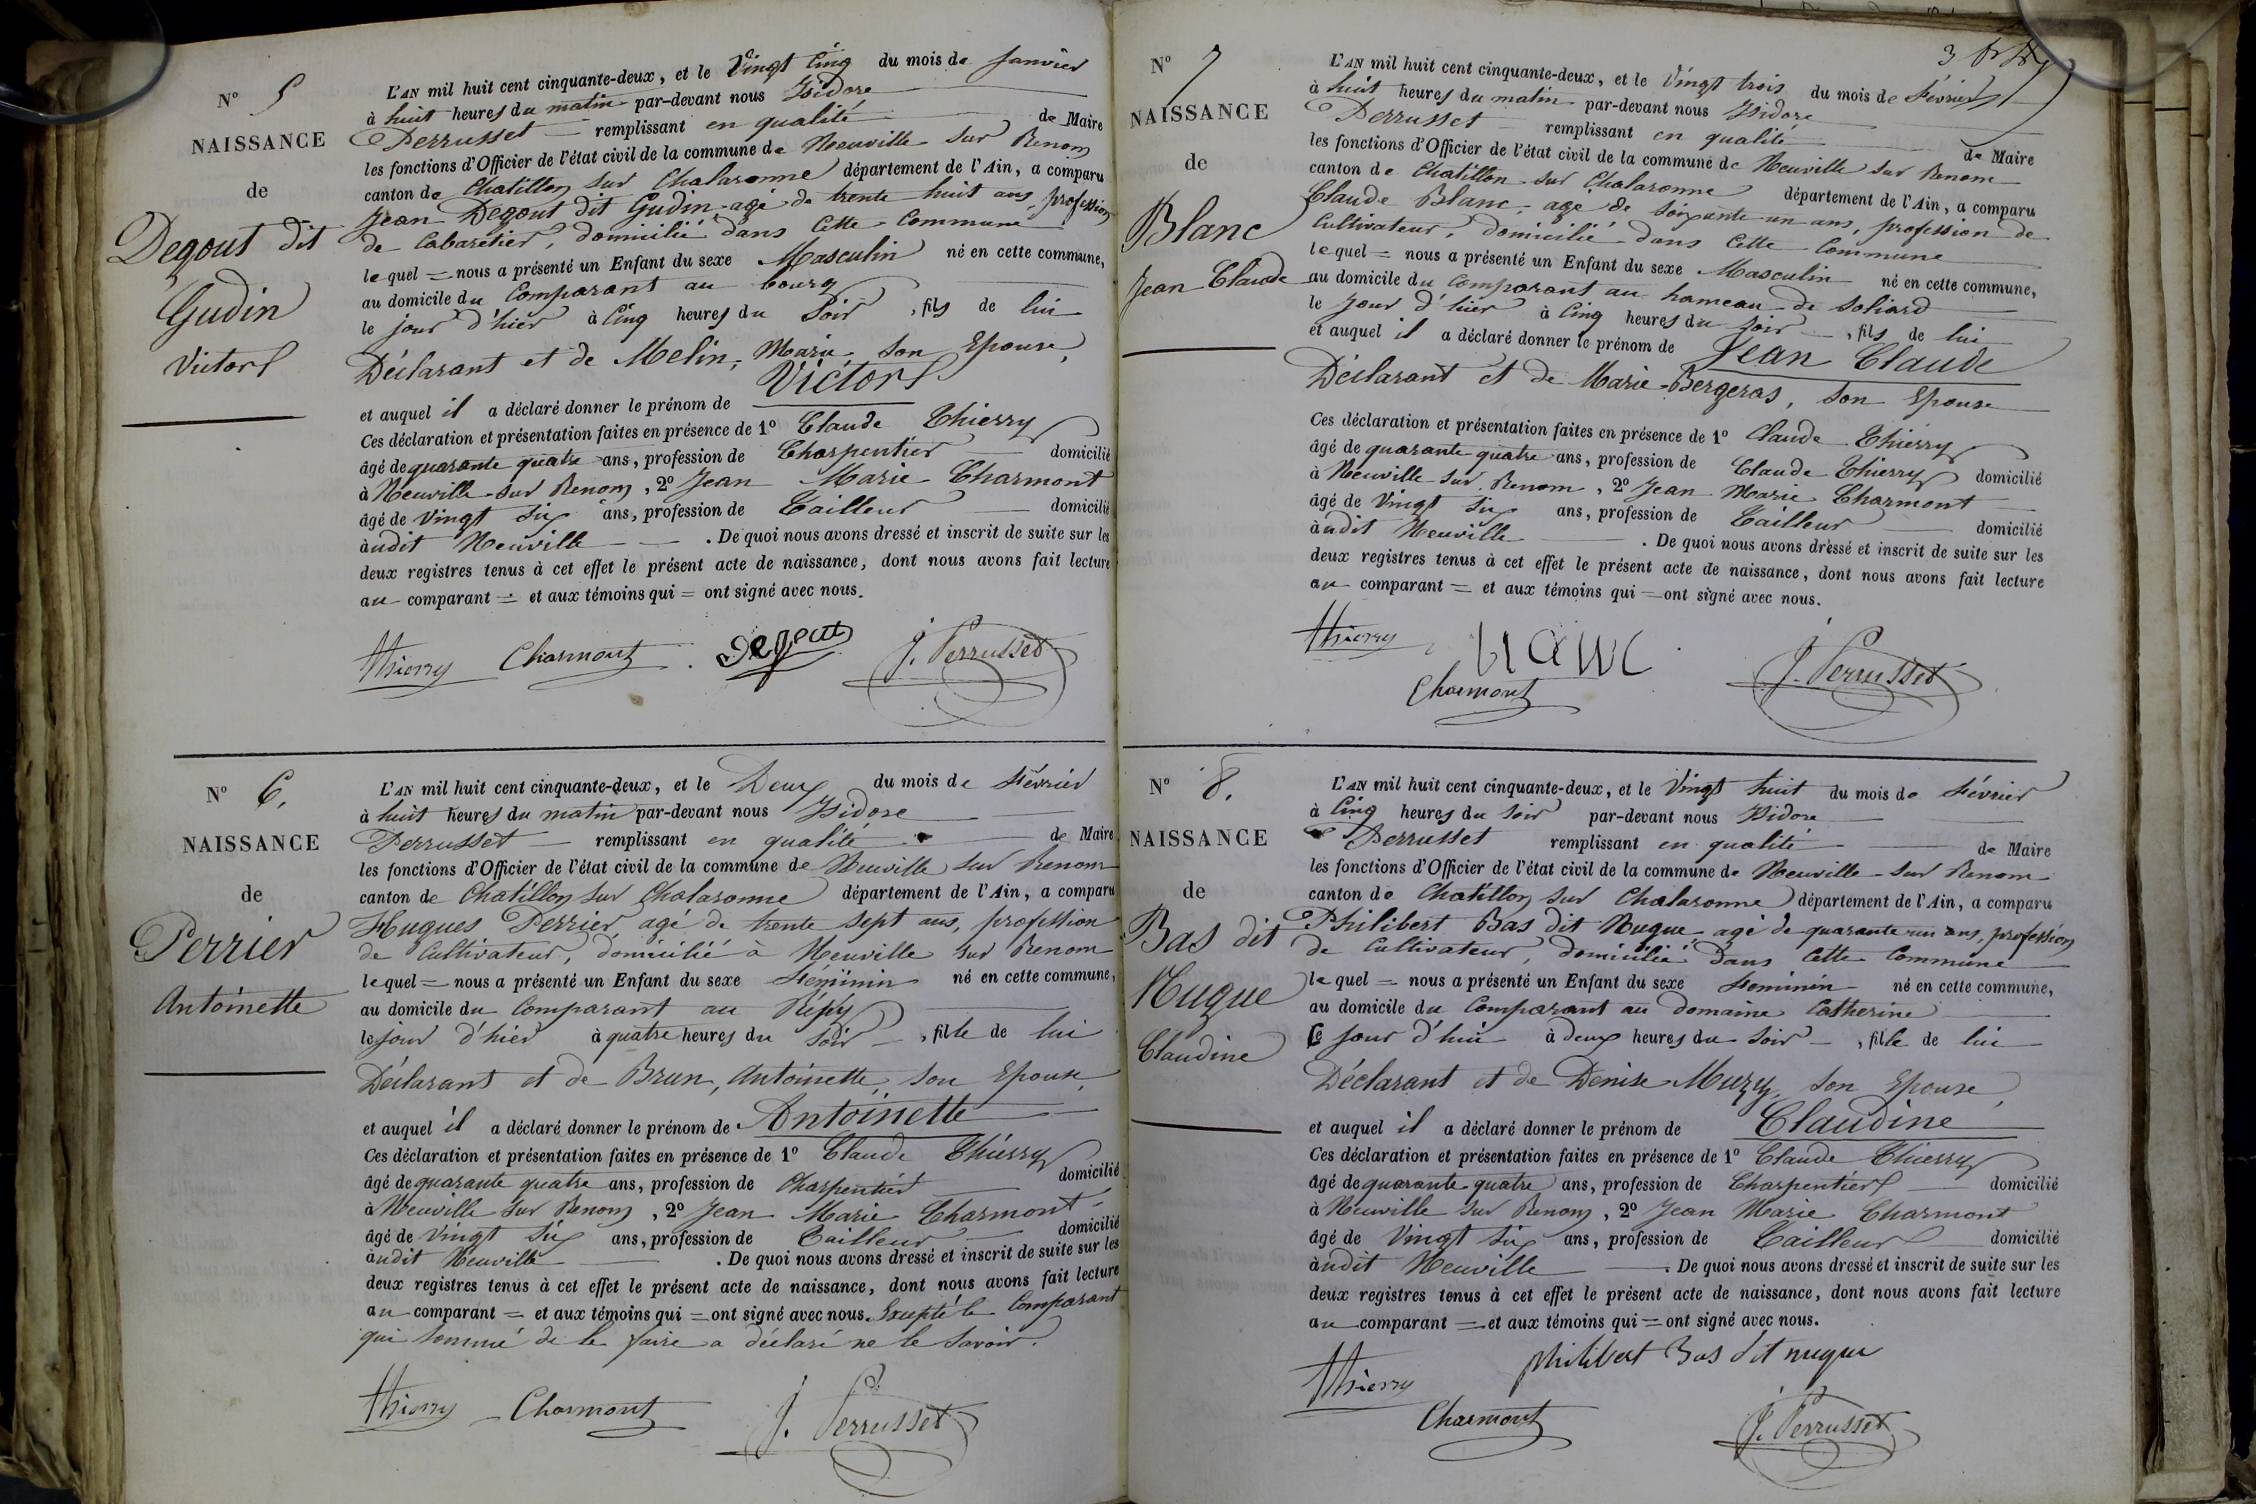 N° 5
NAISSANCE
de
Degout dit
Gudin
Victor
L'AN mil huit cent cinquante-deux, et le Vingt Cinq du mois de Janvier
à huit heures du matin par-devant nous Isidore
Perrusset remplissant en qualité de Maire
les fonctions d'Officier de l'état civil de la commune de Neuville sur Renom
canton de Chatillon sur Chalaronne département de l'Ain, a comparu
Jean Degout dit Gudin agé de trente huit ans, profession
de Cabaretier, domicilié dans Cette Commune
lequel = nous a présenté un Enfant du sexe Masculin né en cette commune,
au domicile du Comparant au bourg
le jour d'hier à Cinq heures du Soir, fils de lui
Déclarant et de Melin, Marie son Epouse,
et auquel il a déclaré donner le prénom de Victor
Ces déclaration et présentation faites en présence de 1° Claude Thierry
âgé de quarante quatre ans, profession de Charpentier domicilié
à Neuville sur Renom, 2° Jean Marie Charmont
âgé de Vingt Six ans, profession de Tailleur domicilié
audit Neuville. De quoi nous avons dressé et inscrit de suite sur les
deux registres tenus à cet effet le présent acte de naissance, dont nous avons fait lecture
au comparant = et aux témoins qui = ont signé avec nous.
Thierry Charmont Degout J. Perrusset
N° 6.
NAISSANCE
de
Perrier
Antoinette
L'AN mil huit cent cinquante-deux, et le Deux du mois de Février
à huit heures du matin par-devant nous Isidore
Perrusset remplissant en qualité de Maire
les fonctions d'Officier de l'état civil de la commune de Neuville sur Renom
canton de Chatillon sur Chalaronne département de l'Ain, a comparu
Hugues Perrier, agé de trente sept ans, profession
de Cultivateur, domicilié à Neuville sur Renom
lequel = nous a présenté un Enfant du sexe Féminin né en cette commune,
au domicile du Comparant au
le jour d'hier à quatre heures du Soir, fille de lui
Déclarant et de Brun, Antoinette, son Epouse,
et auquel il a déclaré donner le prénom de Antoinette
Ces déclaration et présentation faites en présence de 1° Claude Thierry
âgé de quarante quatre ans, profession de Charpentier domicilié
à Neuville sur Renom, 2° Jean Marie Charmont
âgé de Vingt Six ans, profession de Tailleur domicilié
audit Neuville. De quoi nous avons dressé et inscrit de suite sur les
deux registres tenus à cet effet le présent acte de naissance, dont nous avons fait lecture
au comparant = et aux témoins qui = ont signé avec nous. Excepté le Comparant
qui sommé de le faire a déclaré ne le Savoir.
Thierry Charmont J. Perrusset
3
N° 7
NAISSANCE
de
Blanc
Jean Claude
L'AN mil huit cent cinquante-deux, et le Vingt trois du mois de Février
à huit heures du matin par-devant nous Isidore
Perrusset remplissant en qualité de Maire
les fonctions d'Officier de l'état civil de la commune de Neuville sur Renom
canton de Chatillon sur Chalaronne département de l'Ain, a comparu
Claude Blanc, agé de Soixante un ans, profession de
Cultivateur, domicilié dans Cette Commune
lequel = nous a présenté un Enfant du sexe Masculin né en cette commune,
au domicile du Comparant au hameau de Soliard
le jour d'hier à Cinq heures du Soir, fils de lui
et auquel il a déclaré donner le prénom de Jean Claude
Déclarant et de Marie Bergeras, son Epouse
Ces déclaration et présentation faites en présence de 1° Claude Thierry
âgé de quarante quatre ans, profession de Claude Thierry domicilié
à Neuville sur Renom, 2° Jean Marie Charmont
âgé de Vingt Six ans, profession de Tailleur domicilié
audit Neuville. De quoi nous avons dressé et inscrit de suite sur les
deux registres tenus à cet effet le présent acte de naissance, dont nous avons fait lecture
au comparant = et aux témoins qui = ont signé avec nous.
Thierry blanc J. Perrusset
Charmont
N° 8.
NAISSANCE
de
Bas dit
Nugue
Claudine
L'AN mil huit cent cinquante-deux, et le Vingt huit du mois de Février
à Cinq heures du Soir par-devant nous Isidore
Perrusset remplissant en qualité de Maire
les fonctions d'Officier de l'état civil de la commune de Neuville sur Renom
canton de Chatillon sur Chalaronne département de l'Ain, a comparu
Philibert Bas dit Nugue agé de quarante un ans, profession
de Cultivateur, domicilié dans Cette Commune
lequel = nous a présenté un Enfant du sexe Féminin né en cette commune,
au domicile du Comparant au domaine Catherine
Ce jour d'hui à deux heures du Soir, fille de lui
Déclarant et de Denise Muzy son Epouse,
et auquel il a déclaré donner le prénom de Claudine
Ces déclaration et présentation faites en présence de 1° Claude Thierry
âgé de quarante quatre ans, profession de Charpentier domicilié
à Neuville sur Renom, 2° Jean Marie Charmont
âgé de Vingt Six ans, profession de Tailleur domicilié
audit Neuville. De quoi nous avons dressé et inscrit de suite sur les
deux registres tenus à cet effet le présent acte de naissance, dont nous avons fait lecture
au comparant = et aux témoins qui = ont signé avec nous.
Thierry philibert Bas dit nugue
Charmont J. Perrusset